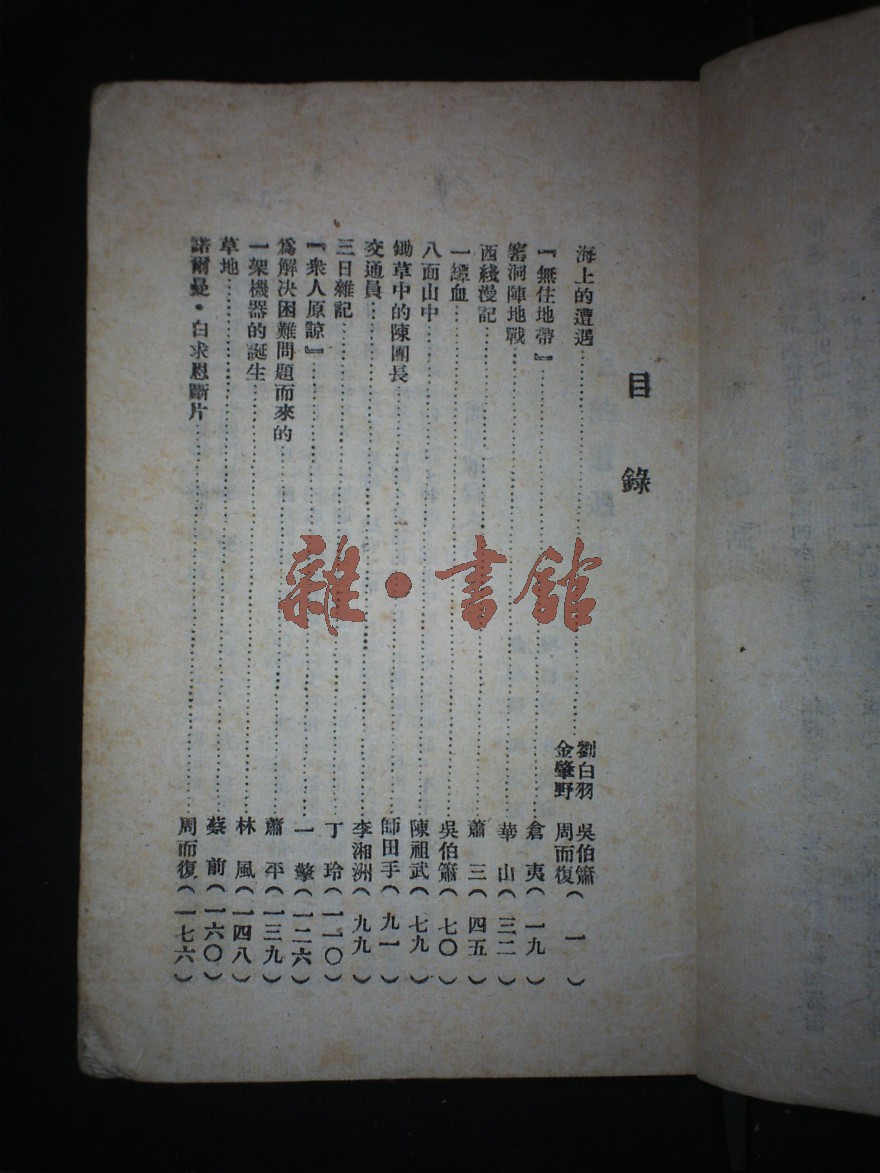 目錄
海上的遭遇……劉白羽 吳伯簫 金肇野 周而復(一)
『無住地帶』……倉夷(一九)
窰洞陣地戰……華山(三二)
西綫漫記……蕭三(四五)
一罈血……吳伯簫(七〇)
八面山中……陳祖武(七九)
鋤草中的陳團長……師田手(九一)
交通員……李湘洲(九九)
三日雜記……丁玲(一一〇)
『衆人原諒』……一擎(一二六)
爲解決困難問題而來的……蕭平(一三九)
一架機器的誕生……林風(一四八)
草地……蔡前(一六〇)
諾爾曼·白求恩斷片……周而復(一七六)
雜·書館